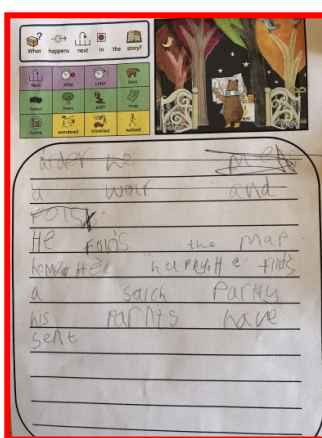 What happens next in the story?
Next After Later bear
forest trees path map
home wondered travelled walked
order he
a wolr and
He finds the map
home He is happy. He finds
a sarch Partys
his Parnts have
sent